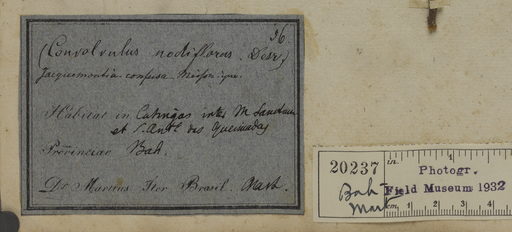 26
(Convolvulus nodiflorus. Desr)
Jacquemontia confusa Meisn
Habitat in Catingas inter M. Sanctum
et S. Ant. das Queimadas
Provinciae Bah
Dr Martius Iter Brasil. Mart.
20237
in.
1
Photogr.
Field Museum 1932
Bah
Mart
cm.
1 2 3 4